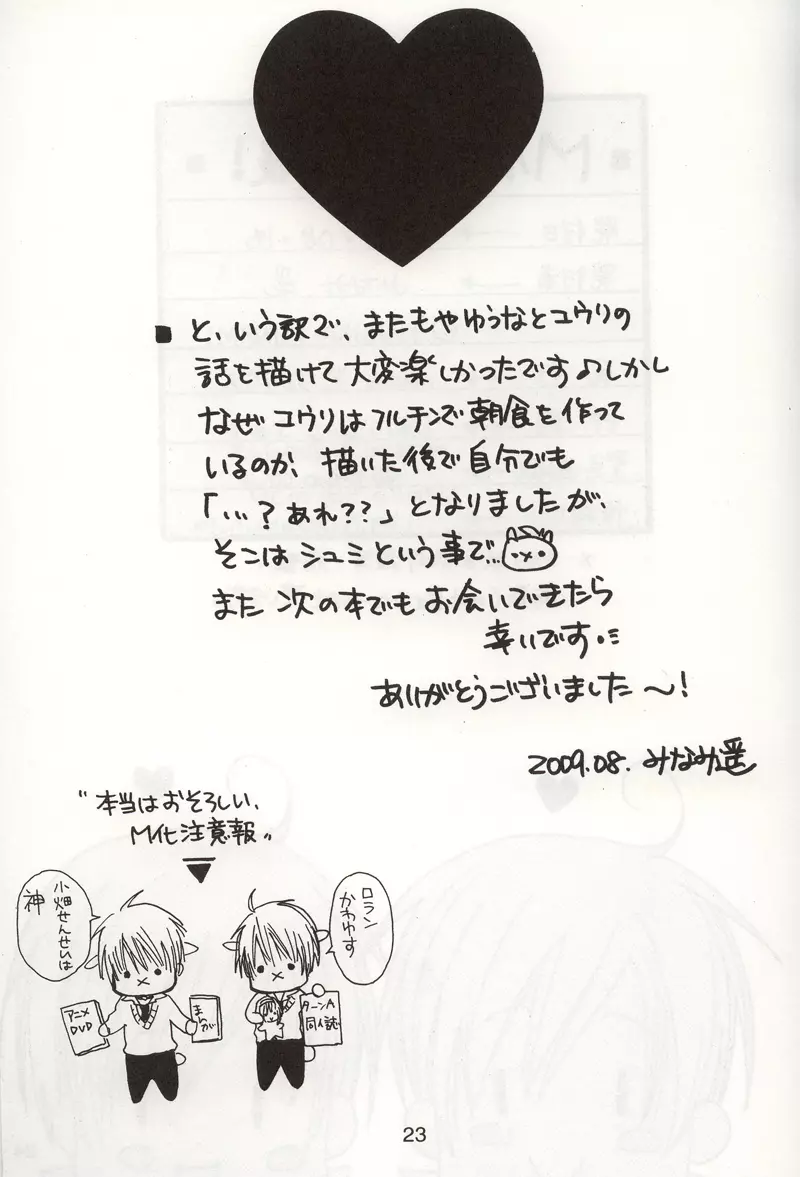 ■ と、いう訳で、またもやゆうなとユウリの
話を描けて大変楽しかったです♪しかし
なぜユウリはフルチンで朝食を作って
いるのか、描いた後で自分でも
「…？あれ??」となりましたが、
そこはシュミという事で…
また次の本でもお会いできたら
幸いです。
ありがとうございました〜!
2009.08. みなみ遥
"本当はおそろしい、
M化注意報"
小畑せんせいは
神
アニメ
DVD
まんが
ロラン
かわゆす
ターンA
同人誌
23